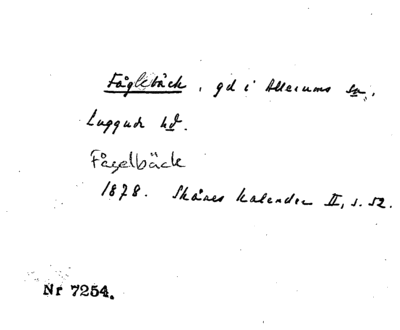 Fåglebäck, gd i Allerums sn,
Luggude hd.
Fågelbäck
1878. Skånes Kalender II, s. 52.
Nr 7254.